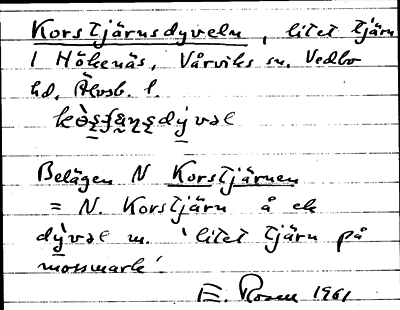 Korstjärnsdyveln, litet tjärn
i Håkenäs, Vårviks sn. Vedbo
hd. Älvsb. l.
Belägen N Korstjärnen
= N. Korstjärn å ek
dỳvəl m. 'litet tjärn på
mossmark'.
E. Rosen 1961